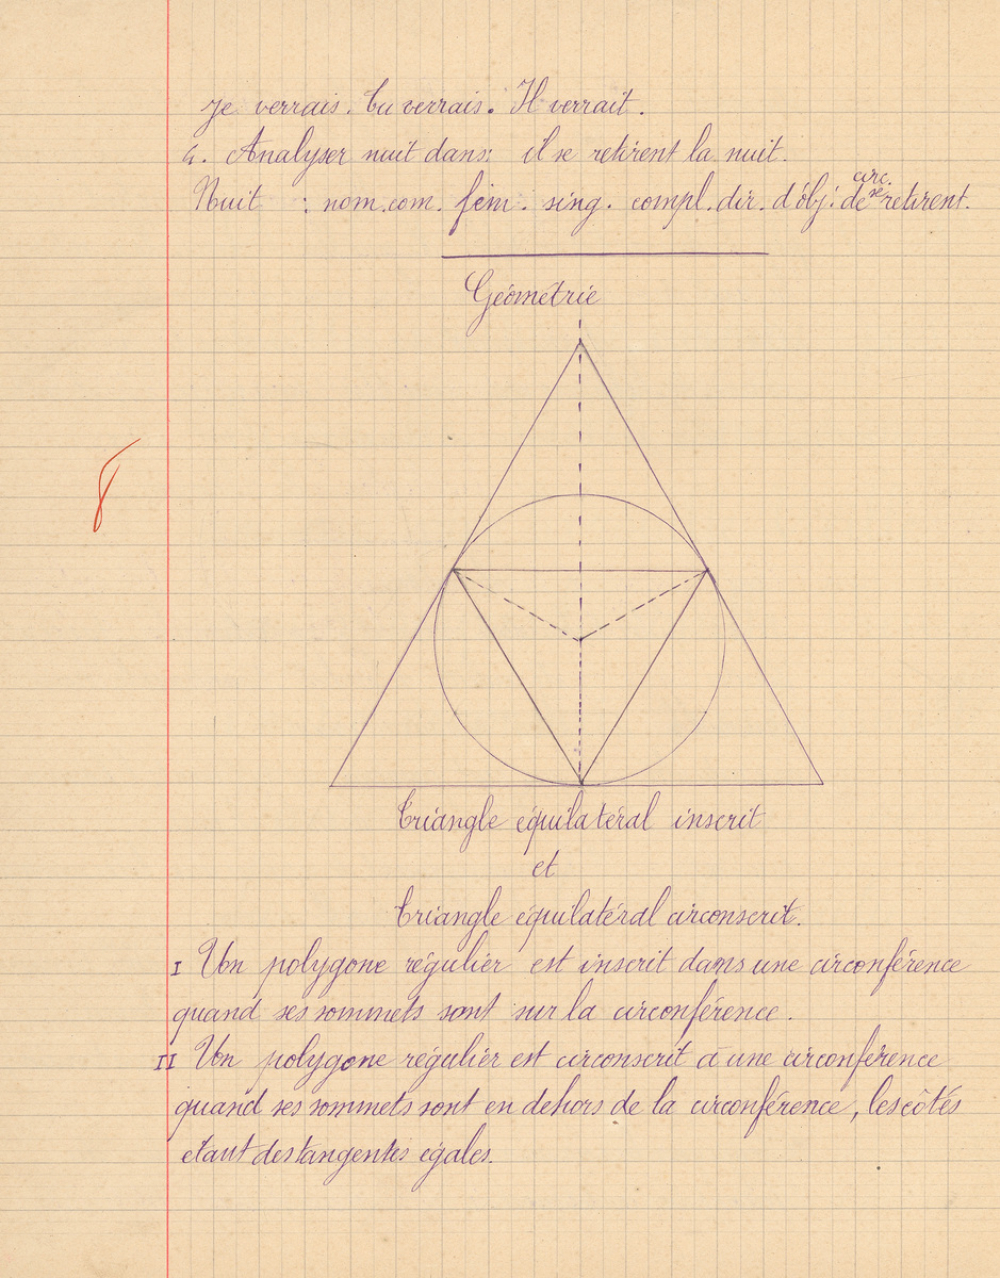 Je verrais. Tu verrais. Il verrait.
4. Analyser nuit dans: il se retirent la nuit.
circ.
Nuit : nom. com. fém. sing. compl. dir. d'obj. de se retirent.
Géométrie
8
Triangle équilatéral inscrit
et
Triangle équilatéral circonscrit.
I Un polygone régulier est inscrit dans une circonférence
quand ses sommets sont sur la circonférence.
II Un polygone régulier est circonscrit à une circonférence
quand ses sommets sont en dehors de la circonférence, les côtés
étant des tangentes égales.